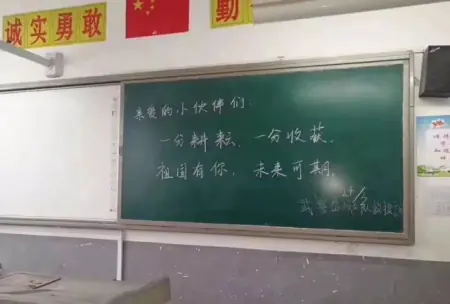 诚实勇敢
勤
亲爱的小伙伴们:
一分耕耘、一分收获.
祖国有你,未来可期.